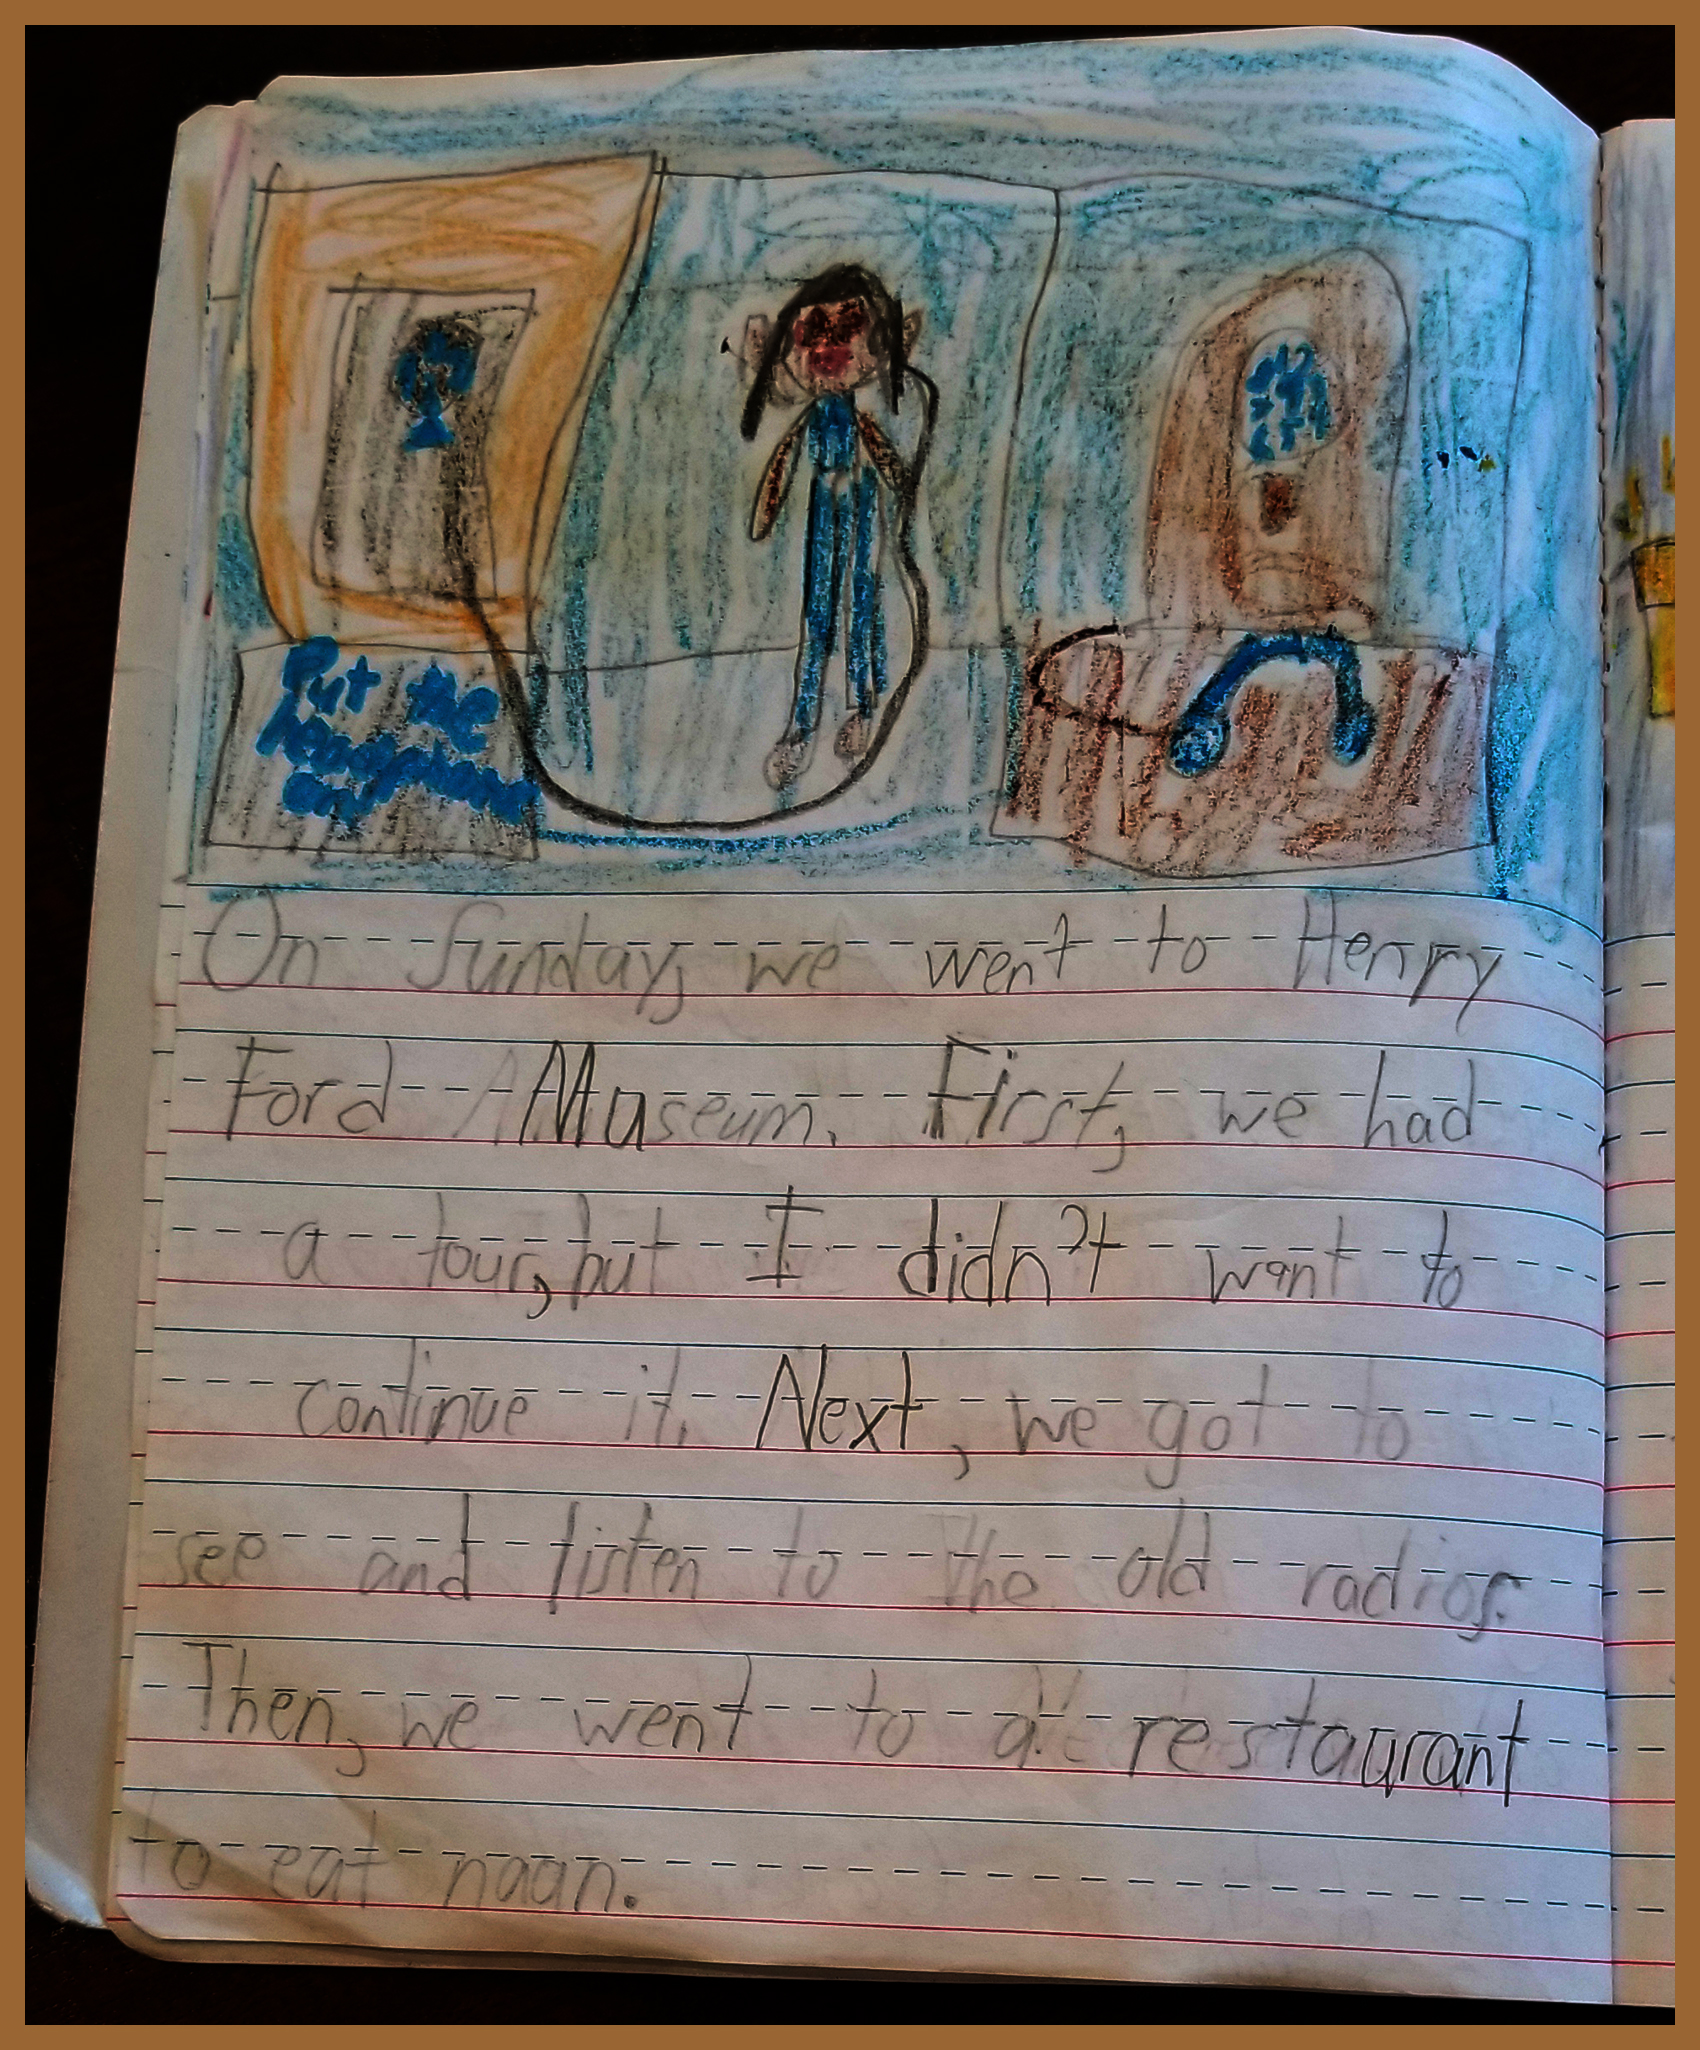 Put the
headphone
on
On Sunday, we went to Henry
Ford Museum. First, we had
a tour, but I didn't want to
continue it. Next, we got to
see and listen to the old radios.
Then, we went to a restaurant
to eat naan.